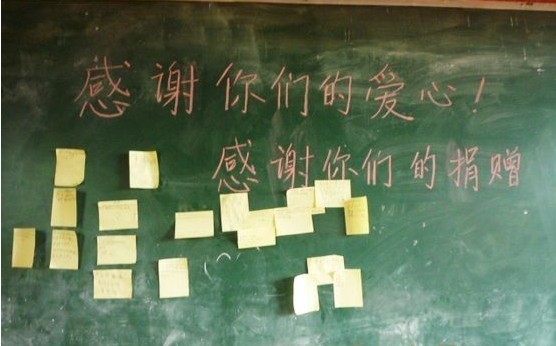 感谢你们的爱心!
感谢你们的捐赠